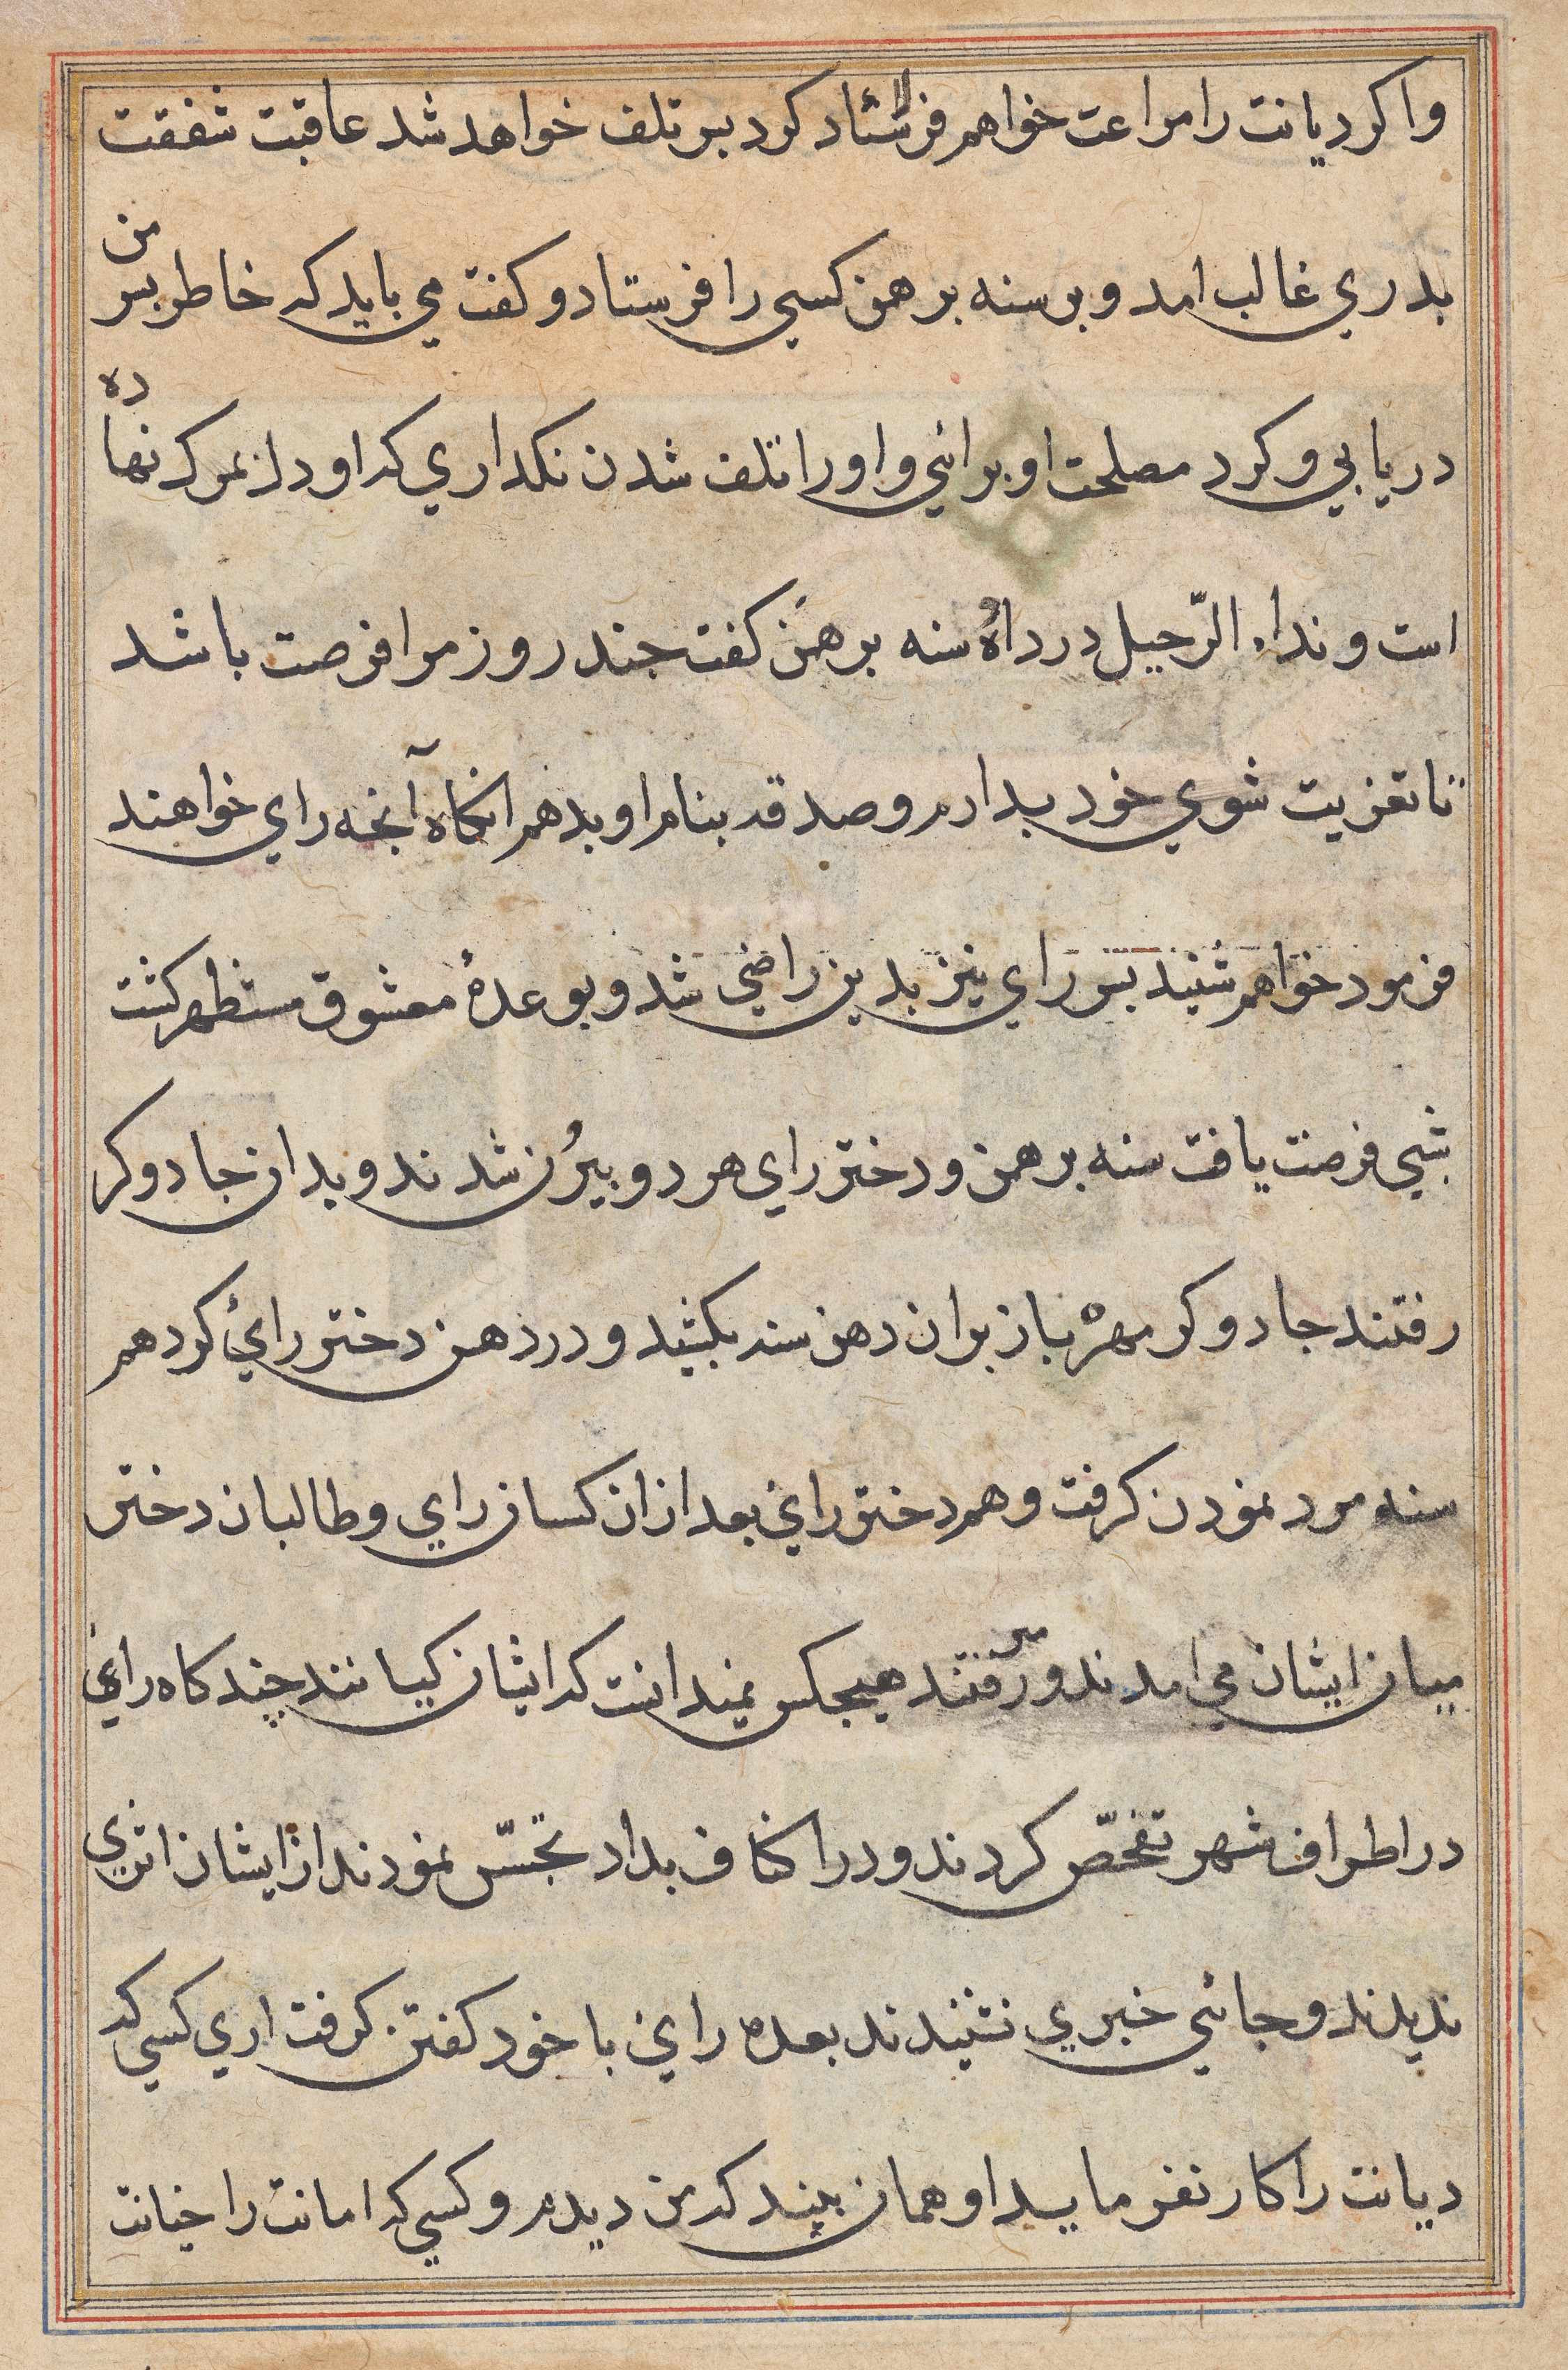 واكر ديانت را مراعت خواهم فرستاد كرد بسر تلف خواهد شد عاقبت شفقت
بدري غالب امد و بر سنه برهمن كسي را فرستاد و كفت مي بايد كه خاطر بسر من
دريابي و كرد مصلحت او برائي و او را تلف شدن نكداري كه او دل بمرك نهاده
است و نداء الرّحيل در داده سنه برهمن كفت جند روز مرا فرصت باشد
تا تعزيت شوي خود بدارم و صدقه بنام او بدهم انكاه آنچه راي خواهند
فرمود خواهم شنيد بس راي نيز بدين راضي شد و بوعدهٔ معشوق مستظهر كشت
شبي فرصت يافت سنه برهمن و دختر راي هر دو بيرُن شدند و بدان جادوكر
رفتند جادوكر مهره باز بران دهن سنه بكشيد و در دهن دختر راي كرد هم
سنه مرد نمودن كرفت و هم دختر راي بعد ازان كسان راي و طالبان دختر
ميان ايشان مي امدند و مي رفتند هيچكس نميدانست كه ايشان كيانند چندكاه راي
در اطراف شهر تفحّص كردند و در اكناف بداد تجسّس نمودند از ايشان اثري
نديدند و جائي خبري نشنيدند بعده راي با خود كفتن كرفت اري كسي كه
ديانت را كار نفرمايد او همان بيند كه من ديدم و كسي كه امانت را خيانت